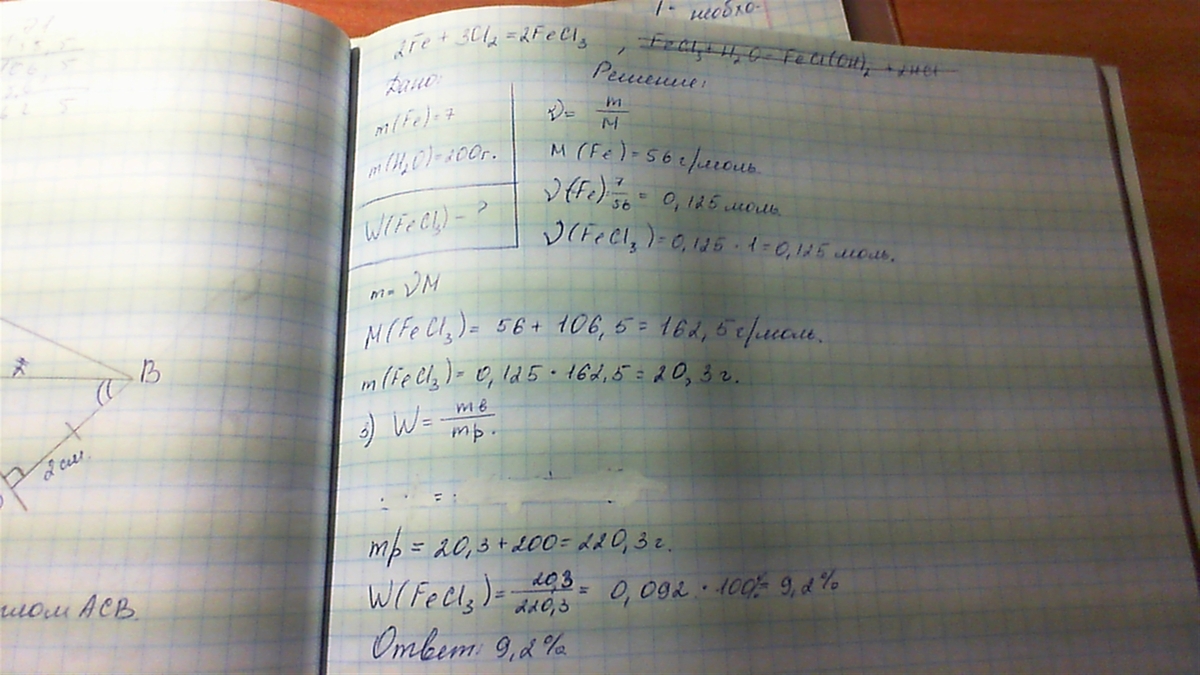 1. необхо-
2Fe + 3Cl₂ = 2FeCl₃ , FeCl₃ + H₂O = FeCl(OH)₂ + 2HCl
Дано:
m(Fe) = 7
m(H₂O) = 200г.
W(FeCl₃) - ?
Решение:
ν = m/M
M(Fe) = 56 г/моль.
ν(Fe) = 7/56 = 0,125 моль.
ν(FeCl₃) = 0,125 · 1 = 0,125 моль.
m = νM
M(FeCl₃) = 56 + 106,5 = 162,5 г/моль.
m(FeCl₃) = 0,125 · 162,5 = 20,3 г.
3) W = mв/mр.
mр = 20,3 + 200 = 220,3 г.
W(FeCl₃) = 20,3/220,3 = 0,092 · 100% = 9,2%
Ответ: 9,2%
B
2 см.
ACB